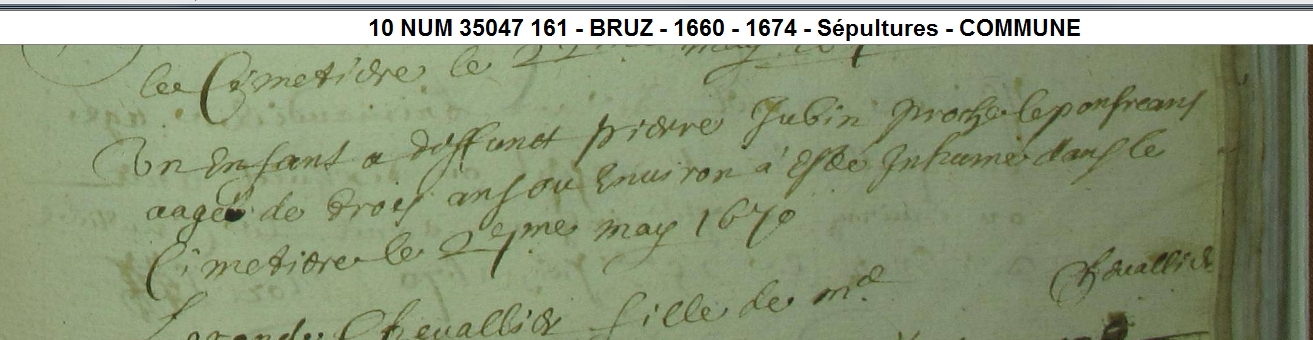 10 NUM 35047 161 - BRUZ - 1660 - 1674 - Sépultures - COMMUNE
Cimetidre le may
Un Enfant a deffunct pierre Jubin proche leponfreans
aagé de trois ans ou Environ a Esté Inhumé dans le
Cimetiere le may 1670
Chevallier
Chevallier fille de me